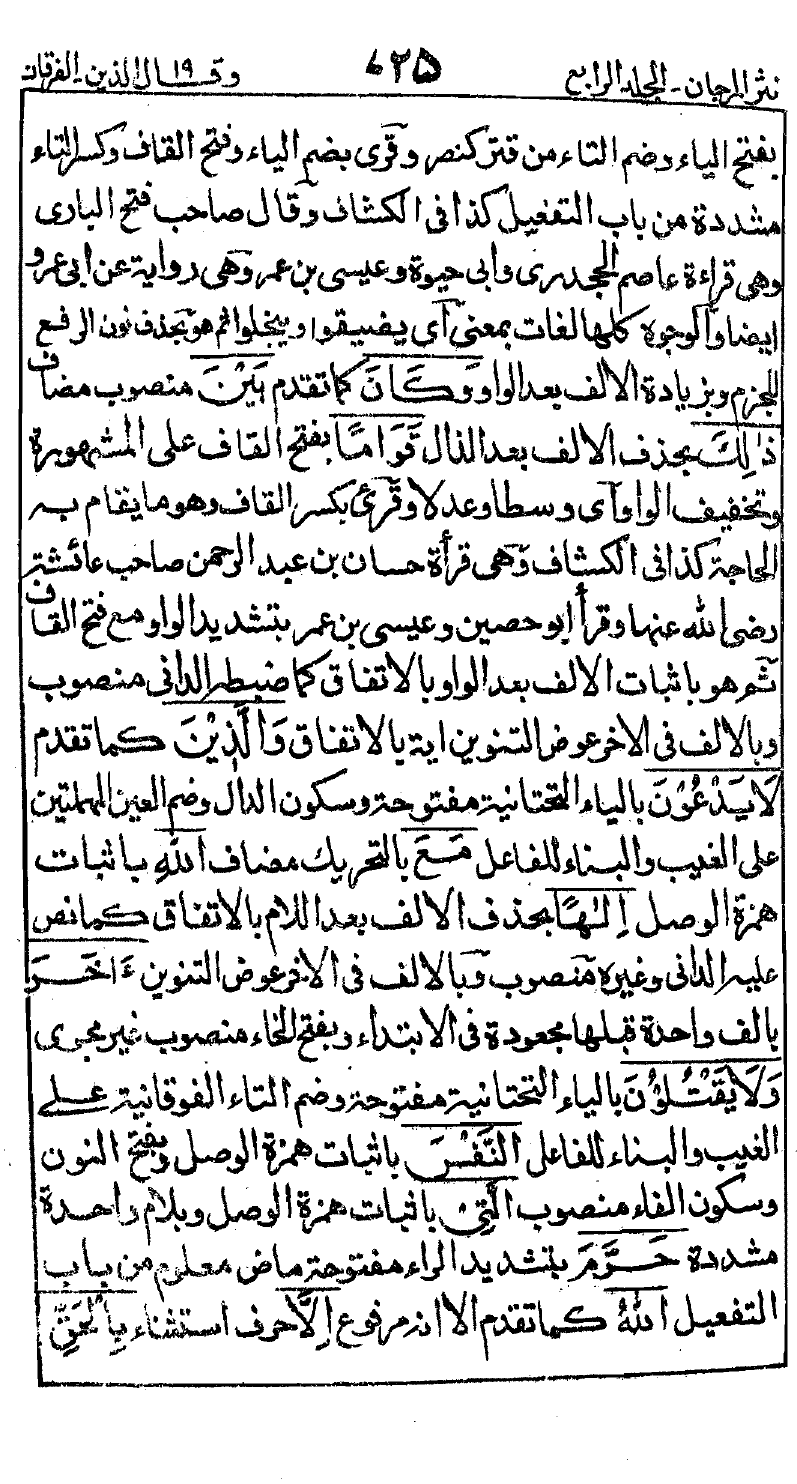 نثر المرجان - المجلد الرابع ٦٢٥ وقال الذين ١٩ - الفرقان
بفتح الياء وضم التاء من قتر كنصر وقرئ بضم الياء وفتح القاف وكسر التاء
مشددة من باب التفعيل كذا فى الكشاف وقال صاحب فتح البارى
وهى قراءة عاصم الجحدرى وابى حيوة وعيسى بن عمر وهى رواية عن ابى عمرو
ايضا والوجوه كلها لغات بمعنى اى يضيقوا ويبخلوا ثم هو بحذف نون الرفع
للجزم وبزيادة الالف بعد الواو وَكَانَ كما تقدم بَيْنَ منصوب مضاف
ذٰلِكَ بحذف الالف بعد الذال قَوَامًا بفتح القاف على المشهورة
وتخفيف الواو اى وسطا وعدلا وقرئ بكسر القاف وهو ما يقام به
الحاجة كذا فى الكشاف وهى قرأة حسان بن عبد الرحمن صاحب عائشة
رضى الله عنها وقرأ ابو حصين وعيسى بن عمر بتشديد الواو مع فتح القاف
ثم هو باثبات الالف بعد الواو بالاتفاق كما ضبطه الدانى منصوب
وبالالف فى الاخر عوض التنوين اية بالاتفاق وَالَّذِيْنَ كما تقدم
لَا يَدْعُوْنَ بالياء التحتانية مفتوحة وسكون الدال وضم العين المهملتين
على الغيب والبناء للفاعل مَعَ بالتحريك مضاف اللهِ باثبات
همزة الوصل اِلٰهًا بحذف الالف بعد اللام بالاتفاق كما نص
عليه الدانى وغيره منصوب وبالالف فى الاخر عوض التنوين ءَاخَرَ
بالف واحدة قبلها مجعودة فى الابتداء وبفتح الخاء منصوب غير مجرى
وَلَا يَقْتُلُوْنَ بالياء التحتانية مفتوحة وضم التاء الفوقانية على
الغيب والبناء للفاعل النَّفْسَ باثبات همزة الوصل وبفتح النون
وسكون الفاء منصوب الَّتِىْ باثبات همزة الوصل وبلام واحدة
مشددة حَرَّمَ بتشديد الراء مفتوحة ماض معلوم من باب
التفعيل اللهُ كما تقدم الا انه مرفوع اِلَّا حرف استثناء بِالْحَقِّ